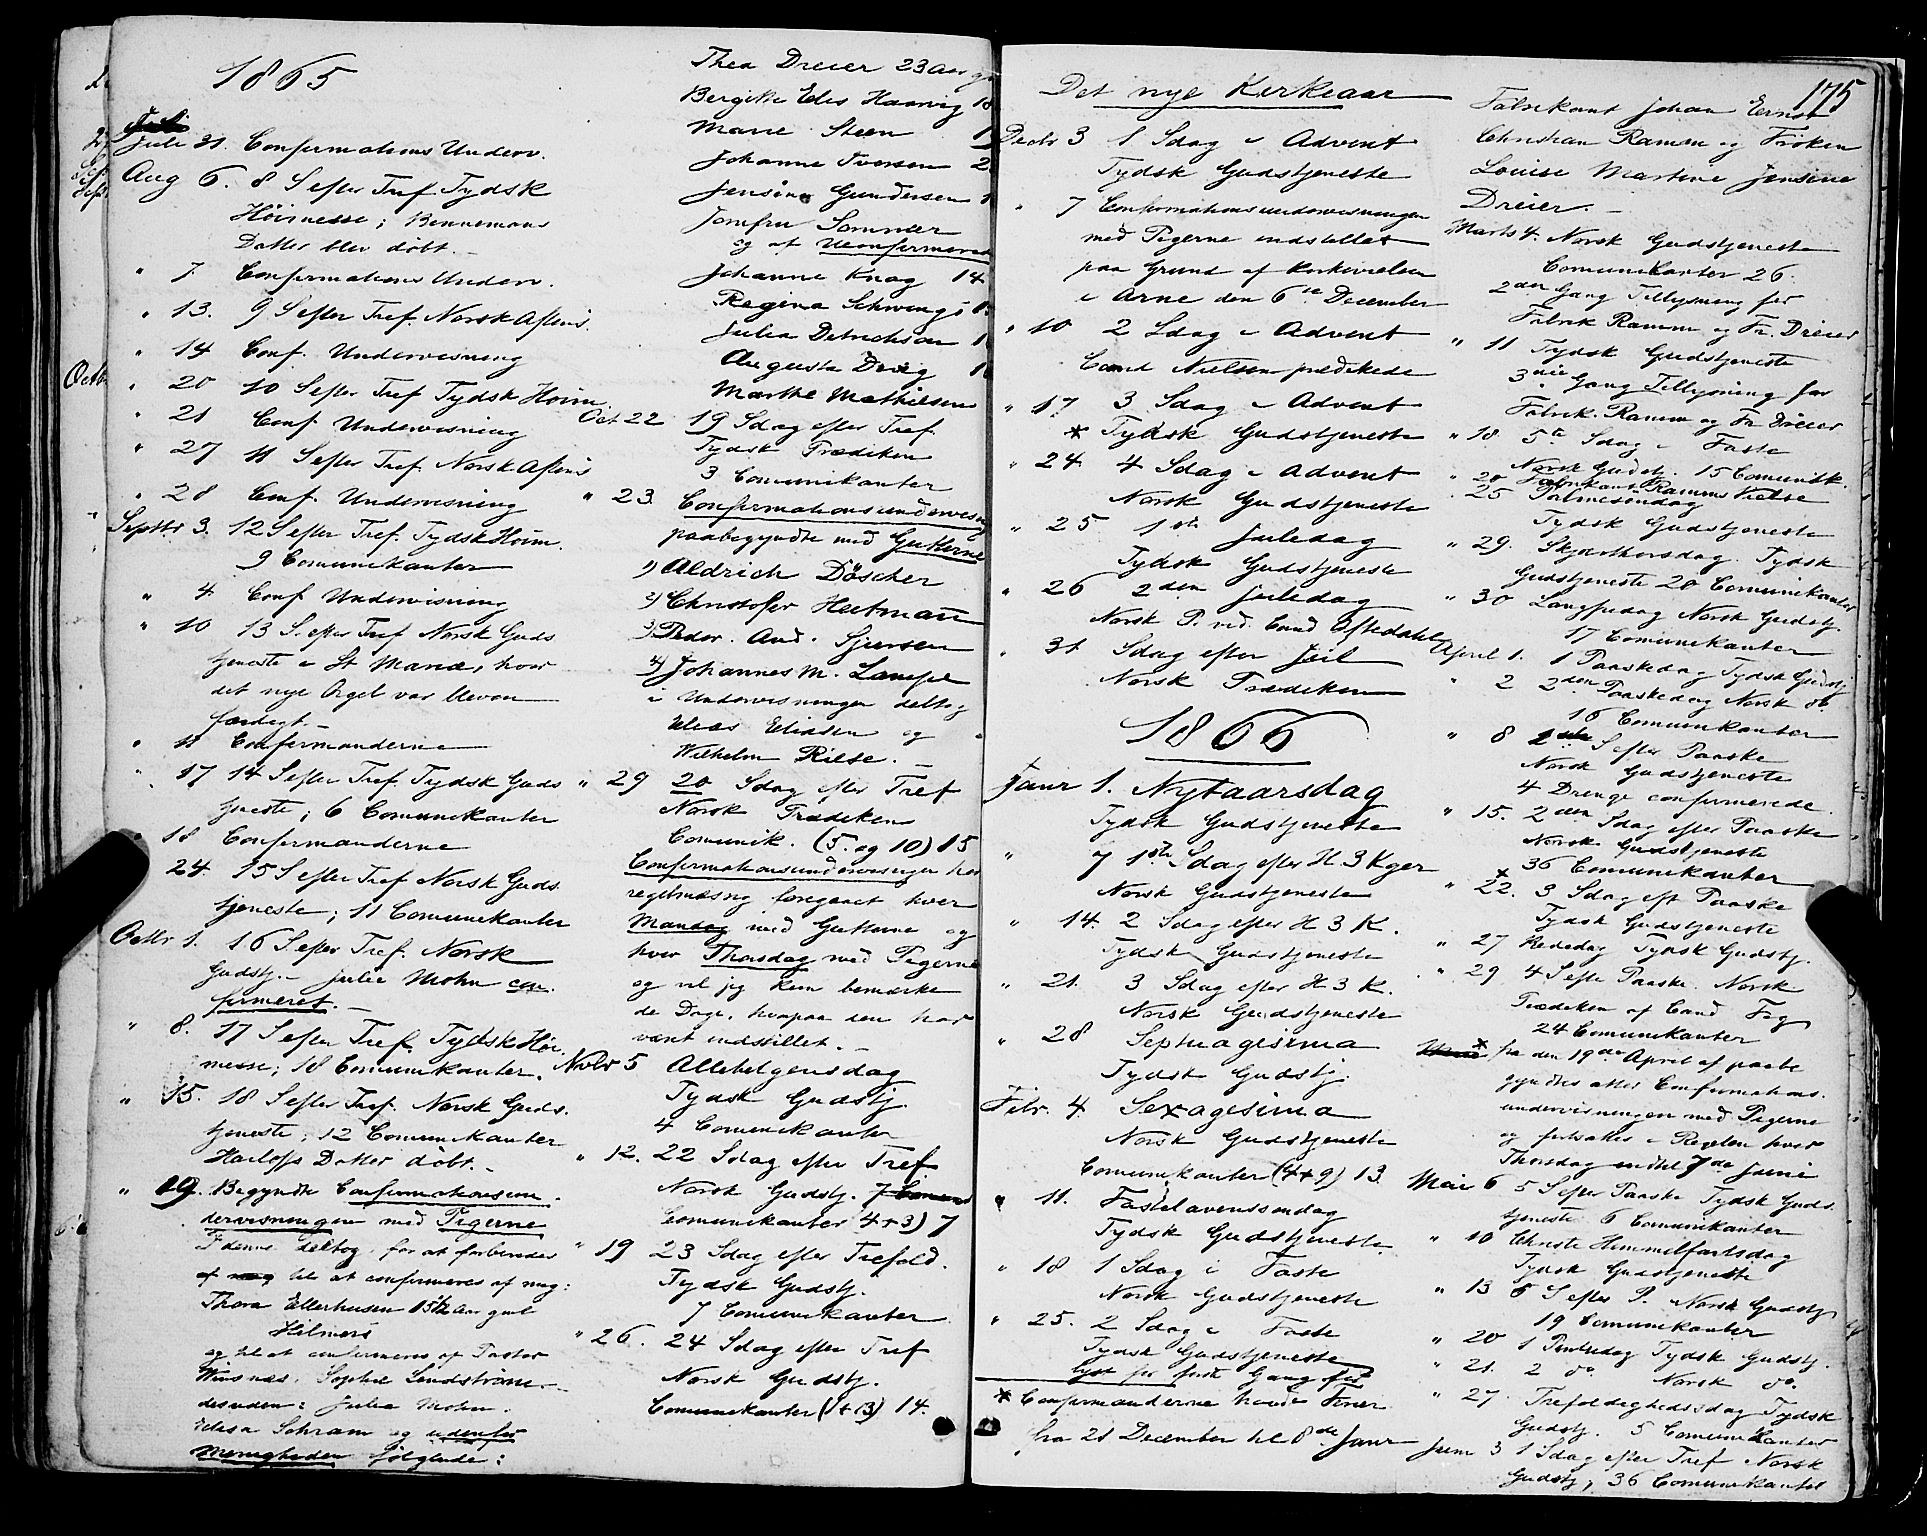 1865
Juli 31. Confirmations Underv.
Aug 6. 8 S efter Tref Tydsk
Höimesse; Bennemans
Datter blev döbt. –
" 7. Confirmations Underv.
" 13. 9 S efter Tref. Norsk Aftens.
" 14 Conf. Undervisning
" 20 10 S efter Tref Tydsk Höim
" 21 Conf Undervisning
" 27 11 S efter Tref. Norsk Aftens
" 28 Conf. Undervisning
Septbr 3. 12 S efter Tref. Tydsk Höim.
9 Comunikanter
" 4 Conf Undervisning
" 10 13 S. efter Tref Norsk Guds
tjeneste i St Mariæ, hvor
det nye Orgel var bleven
færdigt. –
" 11 Confirmanderne
" 17 14 S efter Tref. Tydsk Guds
tjeneste; 6 Comunikanter
" 18 Confirmanderne
24. 15 S efter Tref Norsk Guds
tjeneste; 11 Comunikanter
Octbr 1. 16 S efter Tref. Norsk
Gudstj. – Julie Mohn con.
firmeret. –
" 8. 17 S efter Tref. Tydsk Höi.
messe; 18 Comunikanter.
" 15. 18 S efter Tref. Norsk Guds.
tjeneste; 12 Comunikanter
Döbt. –
" 19. Begyndte Confirmationsun.
dervisningen med Pigerne
I denne deltog, for at forberedes
til at confirmeres af mig:
Thora Ellerhusen 15½ Aar gml
Hilmers
og til at confirmeres af Pastor
Sophie Lindström
desuden: Julia Mohn.
Schram og udenfor
Menigheden fölgende:
Thea Dreier 23 Aar
Bergitte Haarvig
Marie Steen
Johanne Iversen
Jensine Gundersen
Jomfru Sommer
og af Uconfirmerede
Johanne Knag 14
Regina Schwings
Julia Detrichson
Augusta
Marthe Mathiesen
Oct 22 19 Sdag efter Tref.
Tydsk Prædiken
3 Comunikanter
" 23. Confirmationsundervisn
paabegyndte med Gutterne
1) Aldrich Döscher
2) Christofer Heitmann
3) Peder. And. Sjursen
4) Johannes M. Lampe
i Undervisningen deltog
Elias Eliasen og
Wilhelm Riese. –
" 29 20 Sdag efter Tref
Norsk Prædiken
Comunik. (5. og 10) 15
Confirmationsundervisningen har
regelmæssig foregaaet hver
Mandag med Gutterne og
hver Thorsdag med Pigerne
og vil jeg kun bemærke
de Dage, hvorpaa den har
været indstillet. –
Novbr 5 Allehelgensdag
Tydsk Gudstj.
4 Comunikanter
" 12. 22 Sdag efter Tref
Norsk Gudstj.
Comunikanter 4+3) 7
" 19 23 Sdag efter Trefold.
Tydsk Gudstj.
7 Comunikanter
" 26. 24 Sdag efter Tref
Norsk Gudstj.
Comunikanter (1+13) 14.
175
Det nye Kirkeaar
Decbr 3 1 Sdag i Advent
Tydsk Gudstjeneste
" 7 Confirmationsundervisningen
med Pigerne indstillet
paa Grund af Kirkevielsen
i Arne den 6te December
" 10 2 Sdag i Advent
Cand Nielsen prædikede
" 17. 3 Sdag i Advent
* Tydsk Gudstjeneste
" 24. 4 Sdag i Advent
Norsk Gudstjeneste
" 25 1ste Juledag
Tydsk Gudstjeneste
" 26 2den Juledag
Norsk P. ved. Cand Oftedahl
" 31. Sdag efter Jul
Norsk Prædiken
1866
Janr 1. Nytaarsdag
Tydsk Gudstjeneste
" 7 1ste Sdag efter H 3 Kger
Norsk Gudstjeneste
" 14. 2 Sdag efter H 3 K.
Tydsk Gudstjeneste
" 21. 3 Sdag efter H 3 K.
Norsk Gudstjeneste
" 28 Septuagesima
Tydsk Gudstj.
Febr. 4. Sexagesima
Norsk Gudstjeneste
Comunikanter (4+9) 13.
" 11. Fastelavenssöndag
Tydsk Gudstjeneste.
" 18 1 Sdag i Faste
Norsk Gudstjeneste
" 25. 2 Sdag i Faste
Tydsk Gudstjeneste
lyst for förste Gang for
* Confirmanderne havde Ferier
fra 21 December til 8de Janr
Fabrikant Johan Ernst
Christian Ramm og Fröken
Louise Martine Jensine
Dreier. –
Marts 4. Norsk Gudstjeneste
Comunikanter 26.
2den Gang Tillysning for
Fabrik Ramm og Fr. Dreier
" 11 Tydsk Gudstjeneste
3die Gang Tillysning for
Fabrik. Ramm og Fr Dreier
" 18. 5te Sdag i Faste
Norsk Gudstj. 15 Comunik.
" 20 Fabrikant Ramms Vielse
" 25 Palmesöndag
Tydsk Gudstjeneste
" 29. Skjærthorsdag. Tydsk
Gudstjeneste 20 Comunikanter
" 30 Langfredag Norsk Gudstj.
17 Comunikanter
April 1. 1 Paaskedag Tydsk Gudstj
" 2 2den Paaskedag Norsk do.
16 Comunikanter
" 8 1ste S efter Paaske
Norsk Gudstjeneste
4 Drenge confirmerede.
" 15. 2den Sdag efter Paaske
Norsk Gudstjeneste
36 Comunikanter
" 22.* 3 Sdag eft Paaske
Tydsk Gudstjeneste
" 27 Bededag Tydsk Gudstj.
" 29 4 S efter Paaske. Norsk
Prædiken af Cand
24 Comunikanter
* fra den 19de April af paabe
gyndtes atter Confirmations.
undervisningen med Pigerne
og fortsattes i Regelen hver
Thorsdag indtil 7de Juni
Mai 6 5 S efter Paaske Tydsk Guds.
tjeneste 6 Comunikanter
" 10 Christi Himmelfartsdag
Tydsk Gudstjeneste
" 13 6 S efter P. Norsk Gudstj
19 Comunikanter
" 20 1 Pintsedag Tydsk Gudstj.
" 21. 2 do Norsk do.
" 27. Trefoldighedssdag Tydsk
Gudstj. 5 Comunikanter
Juni 3 1 Sdag efter Tref Norsk
Gudstj, 36 Comunikanter